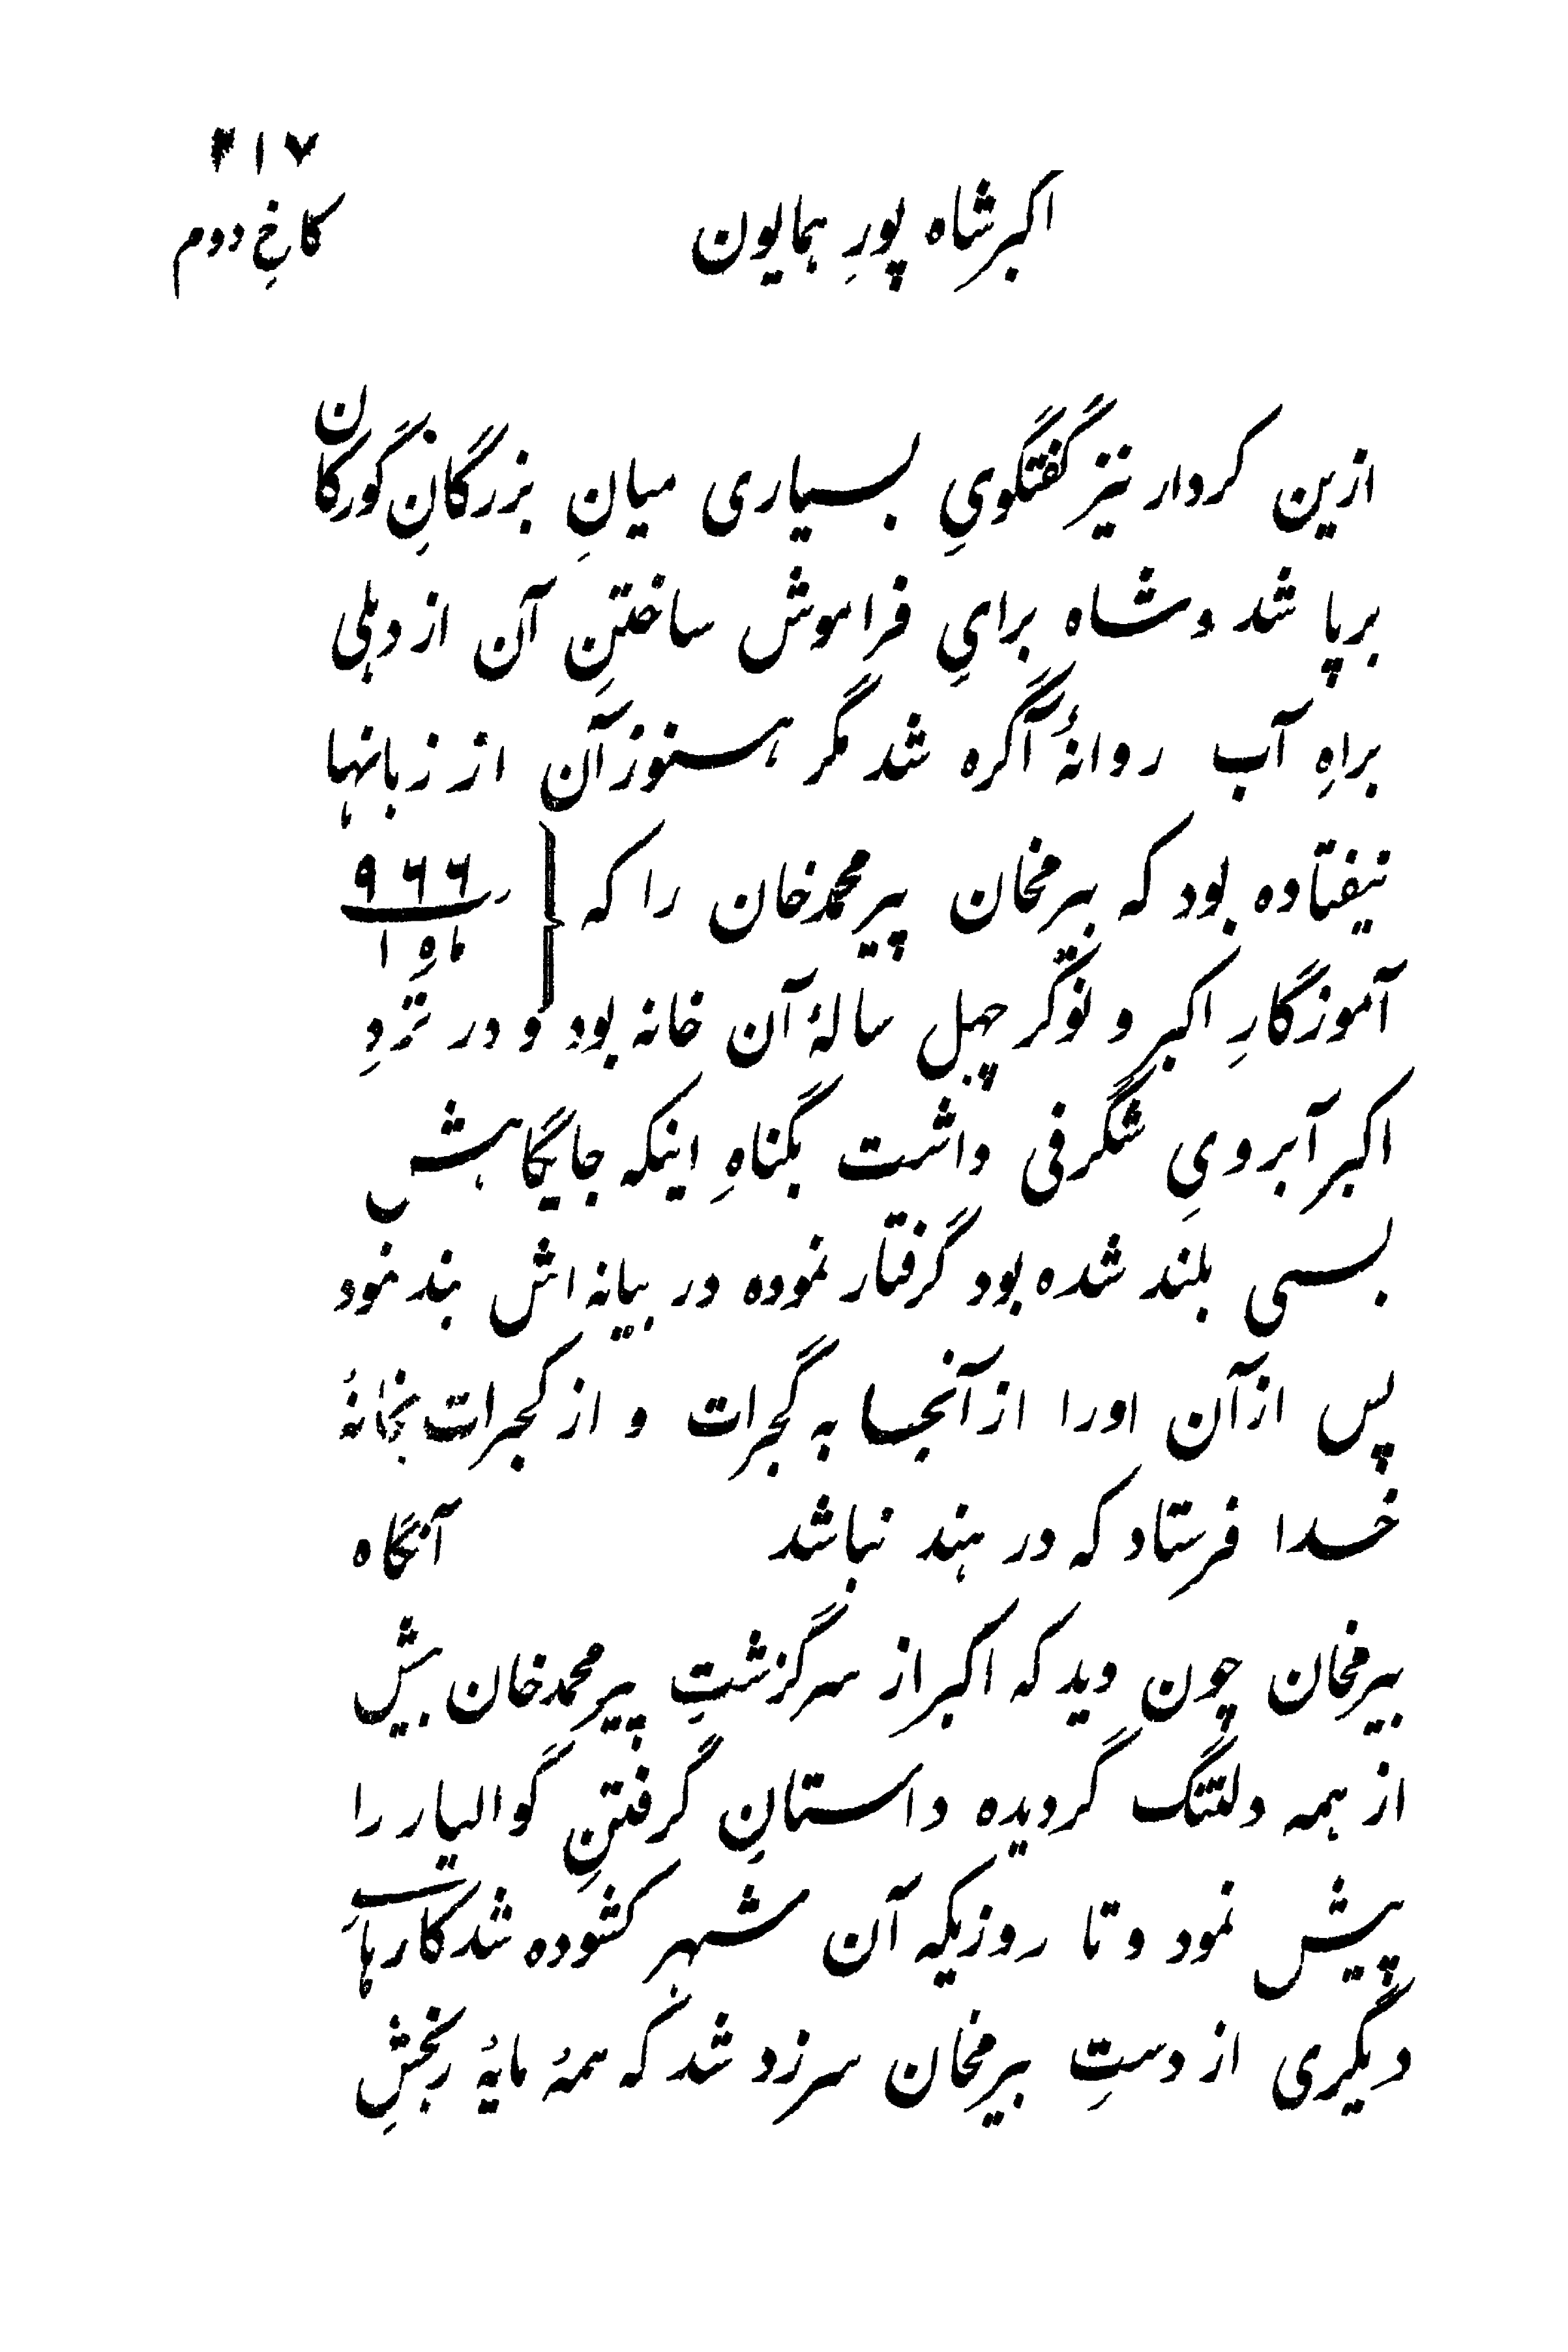 ۴۱۷
اکبرشاه پورِ همایون
کاخِ دوم
ازین کردار نیز گفتگویِ بسیاری میانِ بزرگانِ گورکان
برپا شد و شاه برایِ فراموش ساختنِ آن از دهلی
براهِ آب روانهٔ آگره شد مگر هنوز آن از زبانها
نیفتاده بود که بیرمخان پیرمحمدخان را که } ۹۶۶
ماهِ ۱
آموزگارِ اکبر و نوکر چهل سالهٔ آن خانه بود و در نزدِ
اکبر آبرویِ شگرفی داشت بگناهِ اینکه جایگاهش
بسی بلند شده بود گرفتار نموده در بیانه اش بند نمود
پس از آن اورا از آنجا به گجرات و از گجرات بخانهٔ
خدا فرستاد که در هند نباشد آنگاه
بیرمخان چون دید که اکبر از سرگزشتِ پیرمحمدخان بیش
از همه دلتنگ گردیده داستانِ گرفتنِ گوالیار را
پیش نمود و تا روزیکه آن شهر کشوده شد کارهاے
دیگری از دستِ بیرمخان سرزد شد که همهٔ مایهٔ رنجشِ